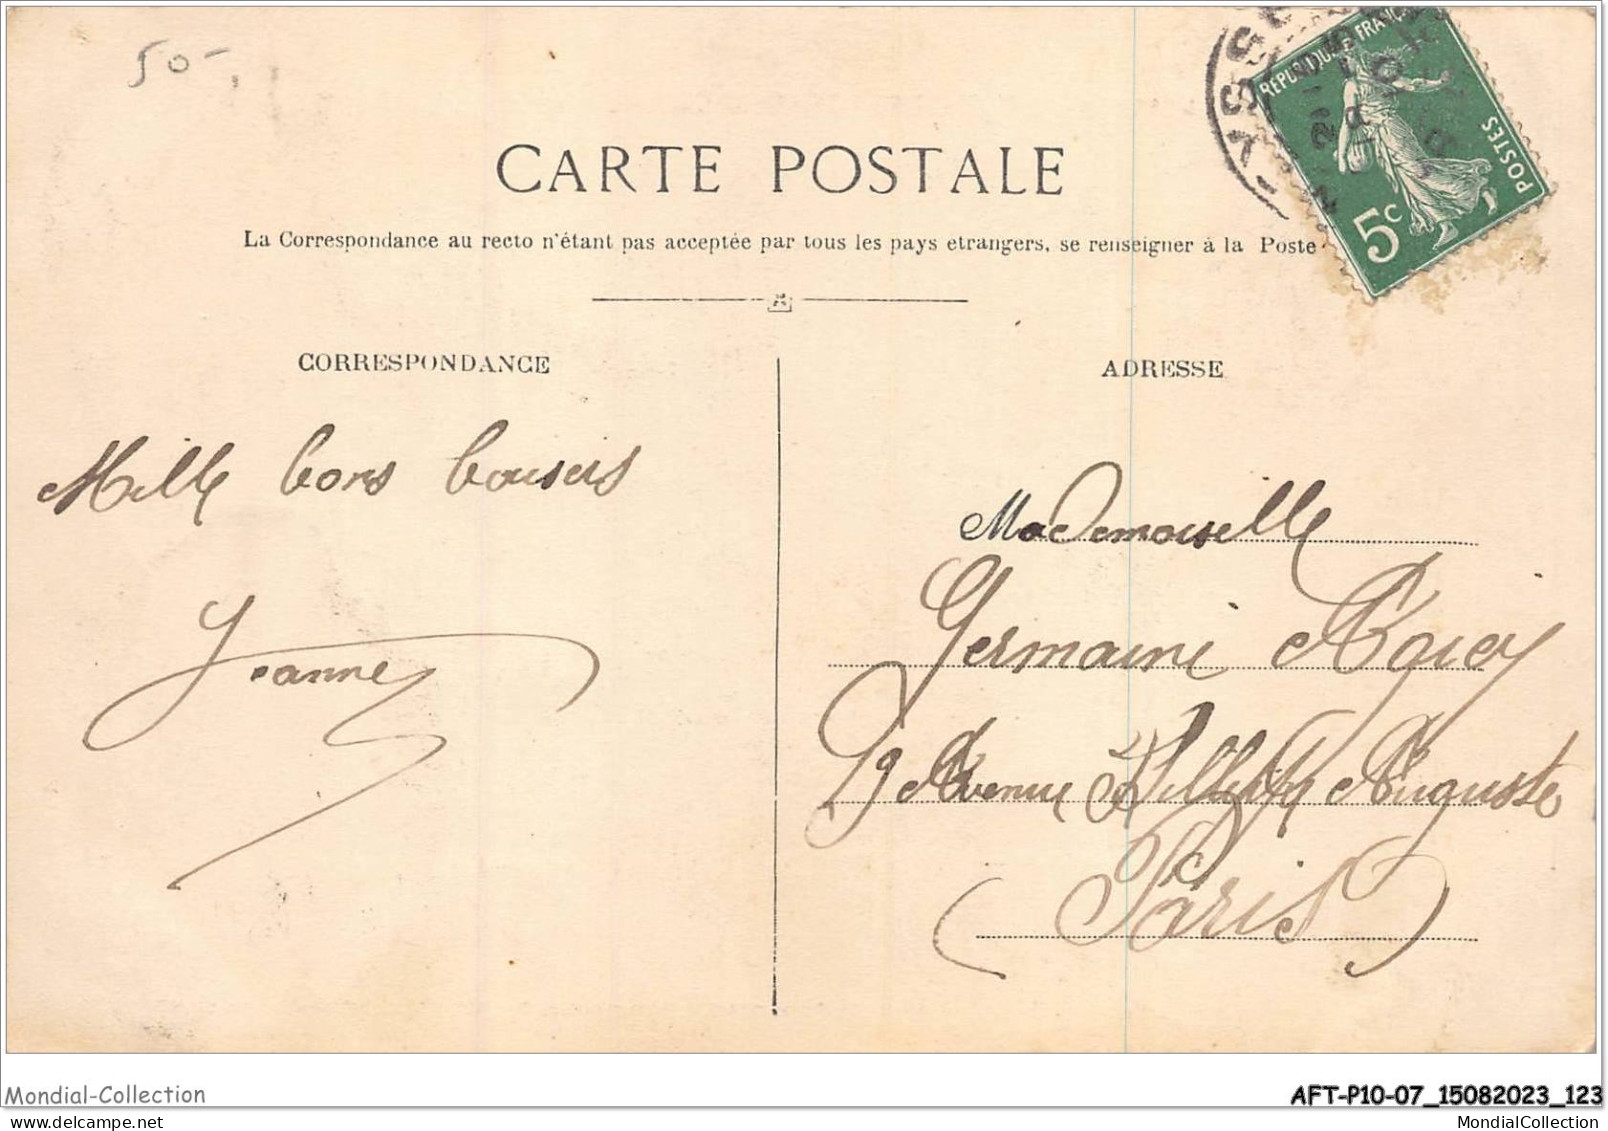 50-
CARTE POSTALE
La Correspondance au recto n'étant pas acceptée par tous les pays etrangers, se renseigner à la Poste
REPUBLIQUE FRANÇAISE
POSTES
5c
CORRESPONDANCE
ADRESSE
Mille bons baisers
Jeanne
Mademoiselle
Germaine
19 Avenue Philippe Auguste
Paris
Mondial-Collection
AFT-P10-07_15082023_123
MondialCollection